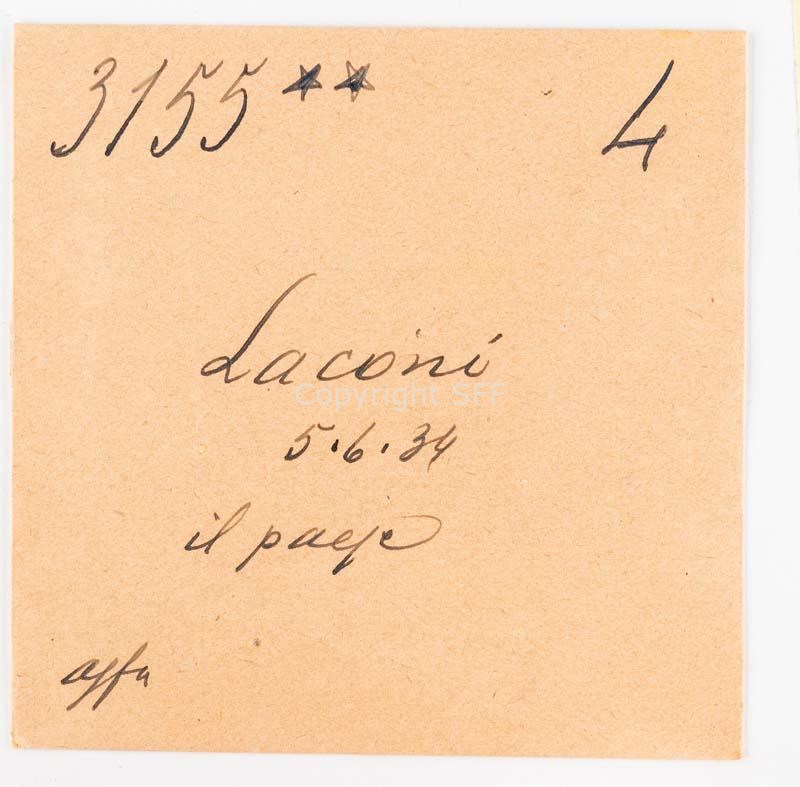 3155★★ 4
Laconi
Copyright SFF
5.6.34
il paese
agfa